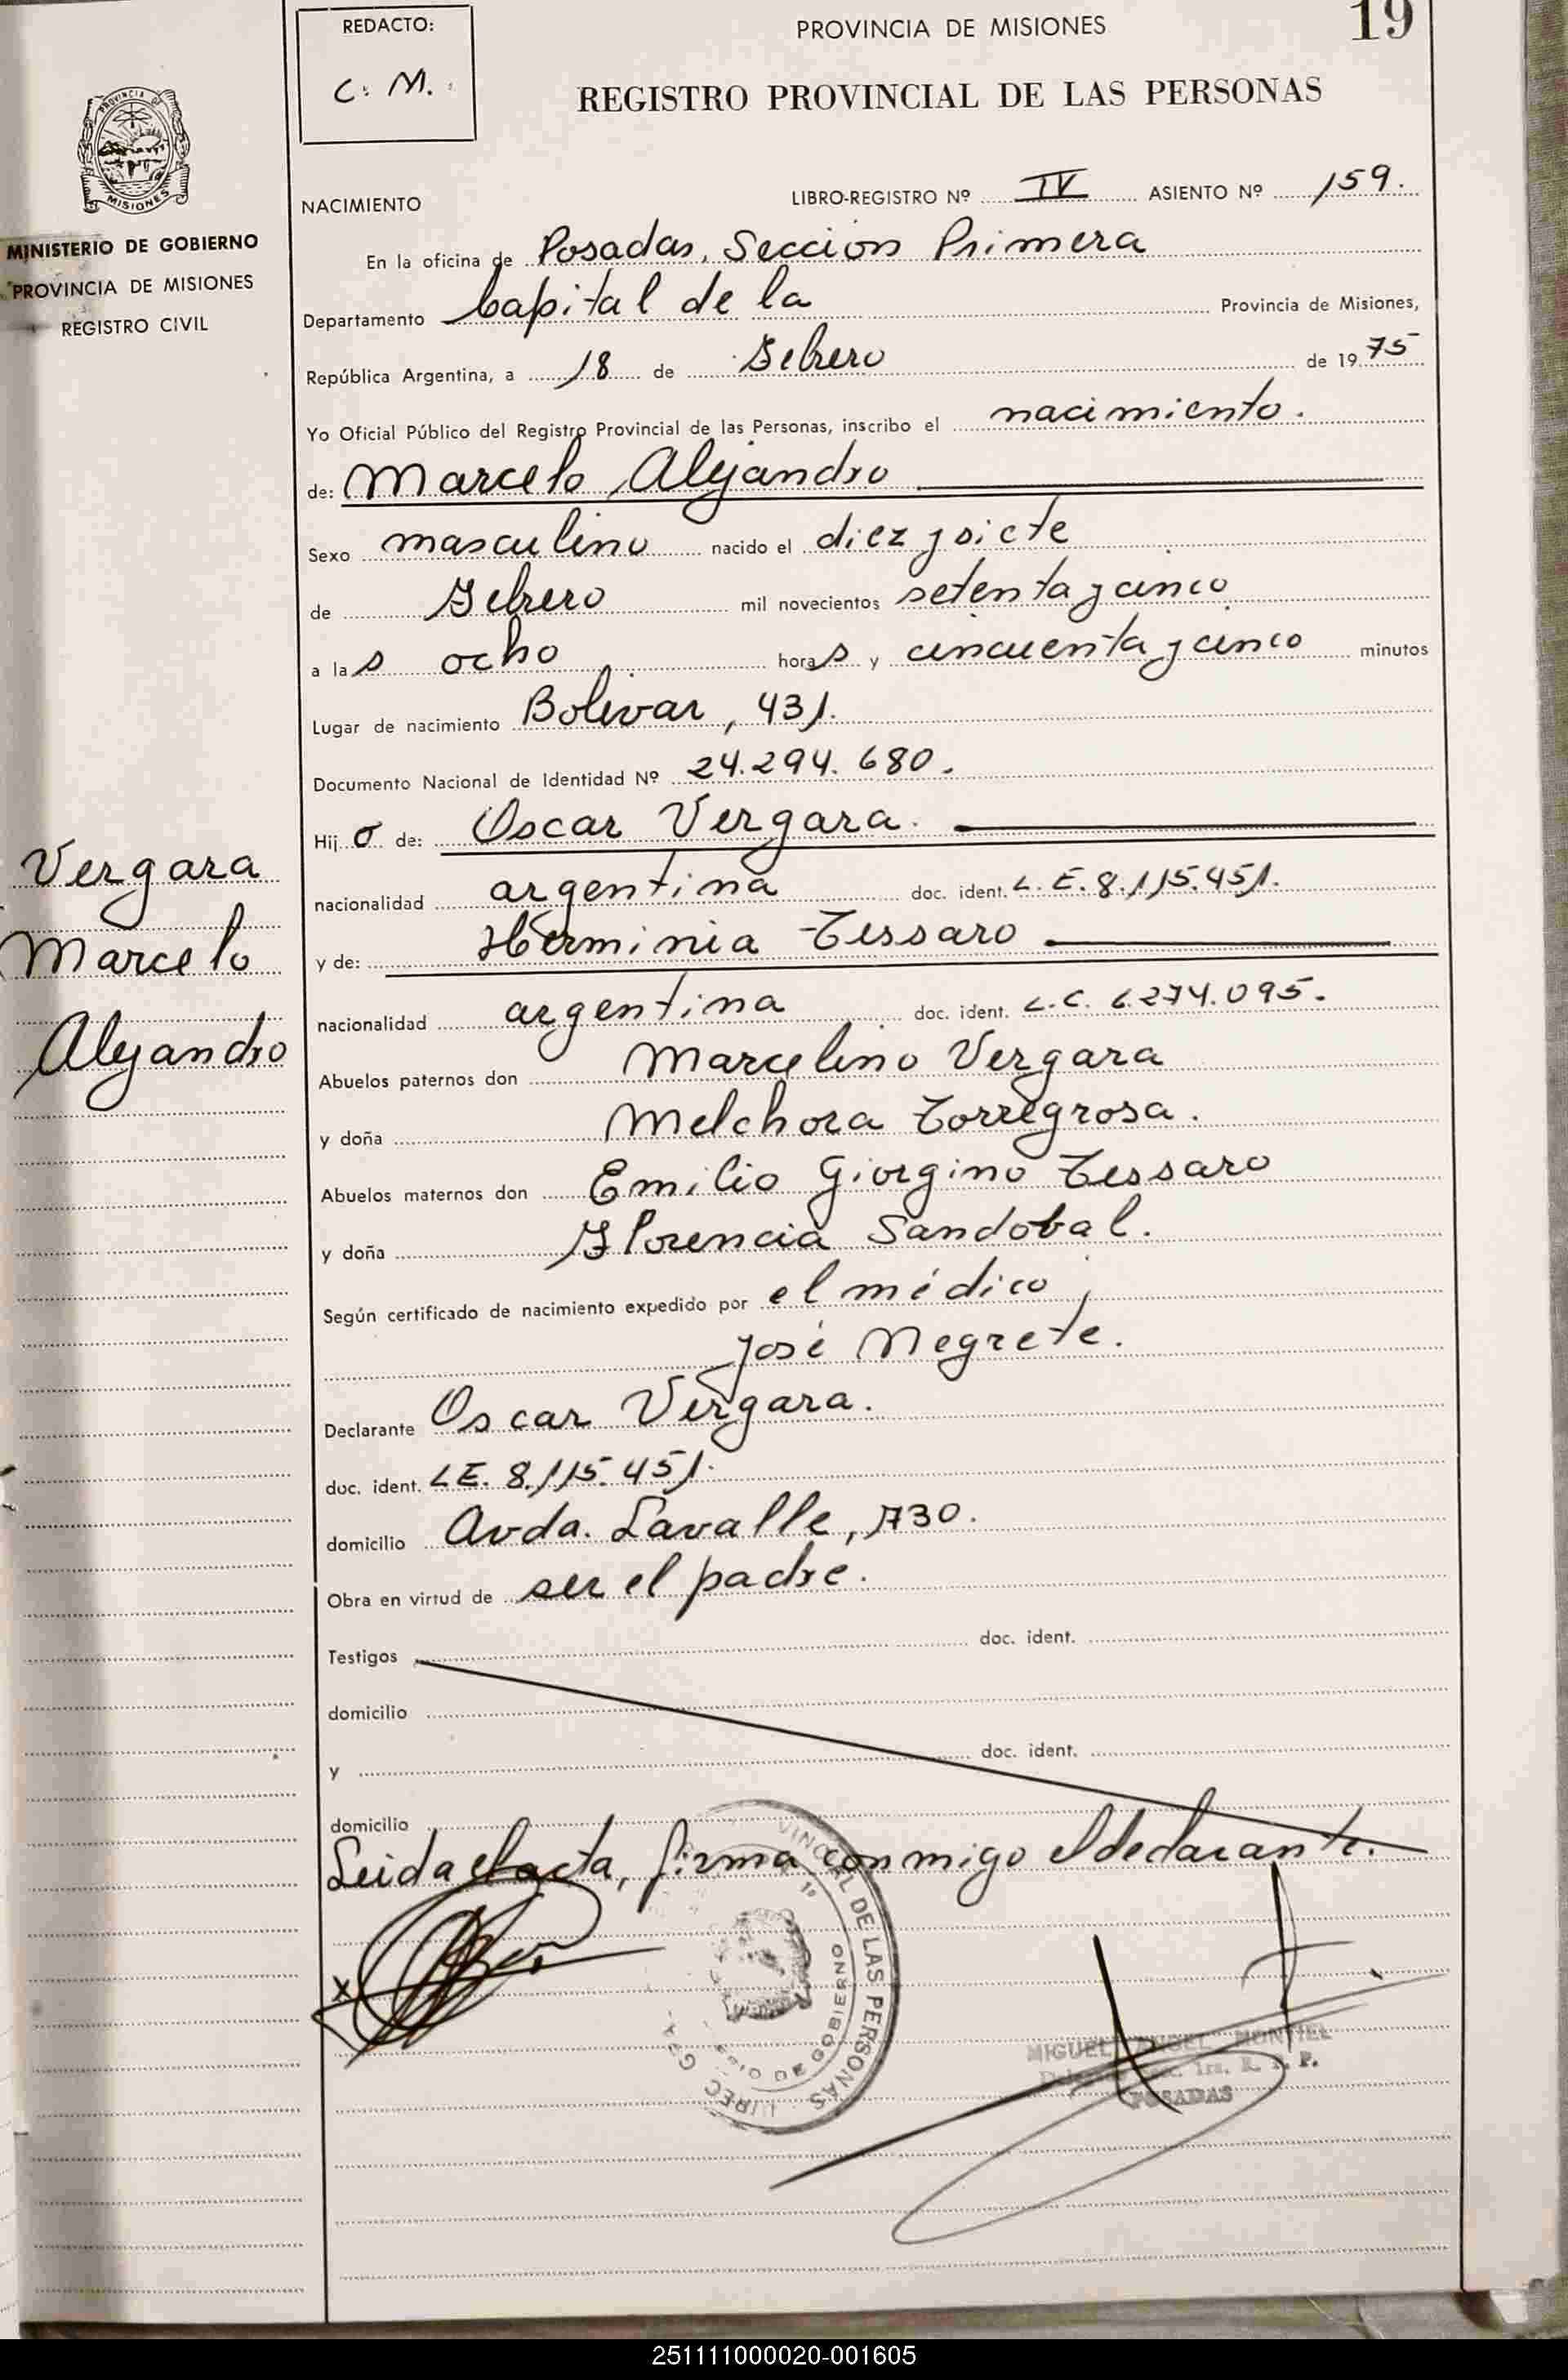 REDACTO:
C. M.
PROVINCIA DE MISIONES
19
REGISTRO PROVINCIAL DE LAS PERSONAS
MISIONES
MINISTERIO DE GOBIERNO
PROVINCIA DE MISIONES
REGISTRO CIVIL
NACIMIENTO LIBRO-REGISTRO Nº IV ASIENTO Nº 159.
En la oficina de Posadas, Seccion Primera
Departamento Capital de la Provincia de Misiones,
República Argentina, a 18 de Febrero de 1975
Yo Oficial Público del Registro Provincial de las Personas, inscribo el nacimiento.
de: Marcelo Alejandro
Sexo masculino nacido el diez y siete
de Febrero mil novecientos setenta y cinco
a las ocho horas y cincuenta y cinco minutos
Lugar de nacimiento Bolivar, 431.
Documento Nacional de Identidad Nº 24.294.680.
Hijo de: Oscar Vergara.
nacionalidad argentina doc. ident. L. E. 8.115.451.
y de: Herminia Tessaro
nacionalidad argentina doc. ident. L. C. 6.274.095.
Abuelos paternos don Marcelino Vergara
y doña Melchora Torregrosa.
Abuelos maternos don Emilio Giorgino Tessaro
y doña Florencia Sandobal.
Según certificado de nacimiento expedido por el médico,
José Negrete.
Declarante Oscar Vergara.
doc. ident. LE. 8.115.451.
domicilio Avda. Lavalle, 1730.
Obra en virtud de ser el padre.
Testigos doc. ident.
domicilio
y doc. ident.
domicilio
Leida el acta, firma conmigo el declarante.
Vergara
Marcelo
Alejandro
x
VINCIAL DE LAS PERSONAS
DE GOBIERNO
MIGUEL ANGEL MONTIEL
1ra. R. P. P.
POSADAS
251111000020-001605